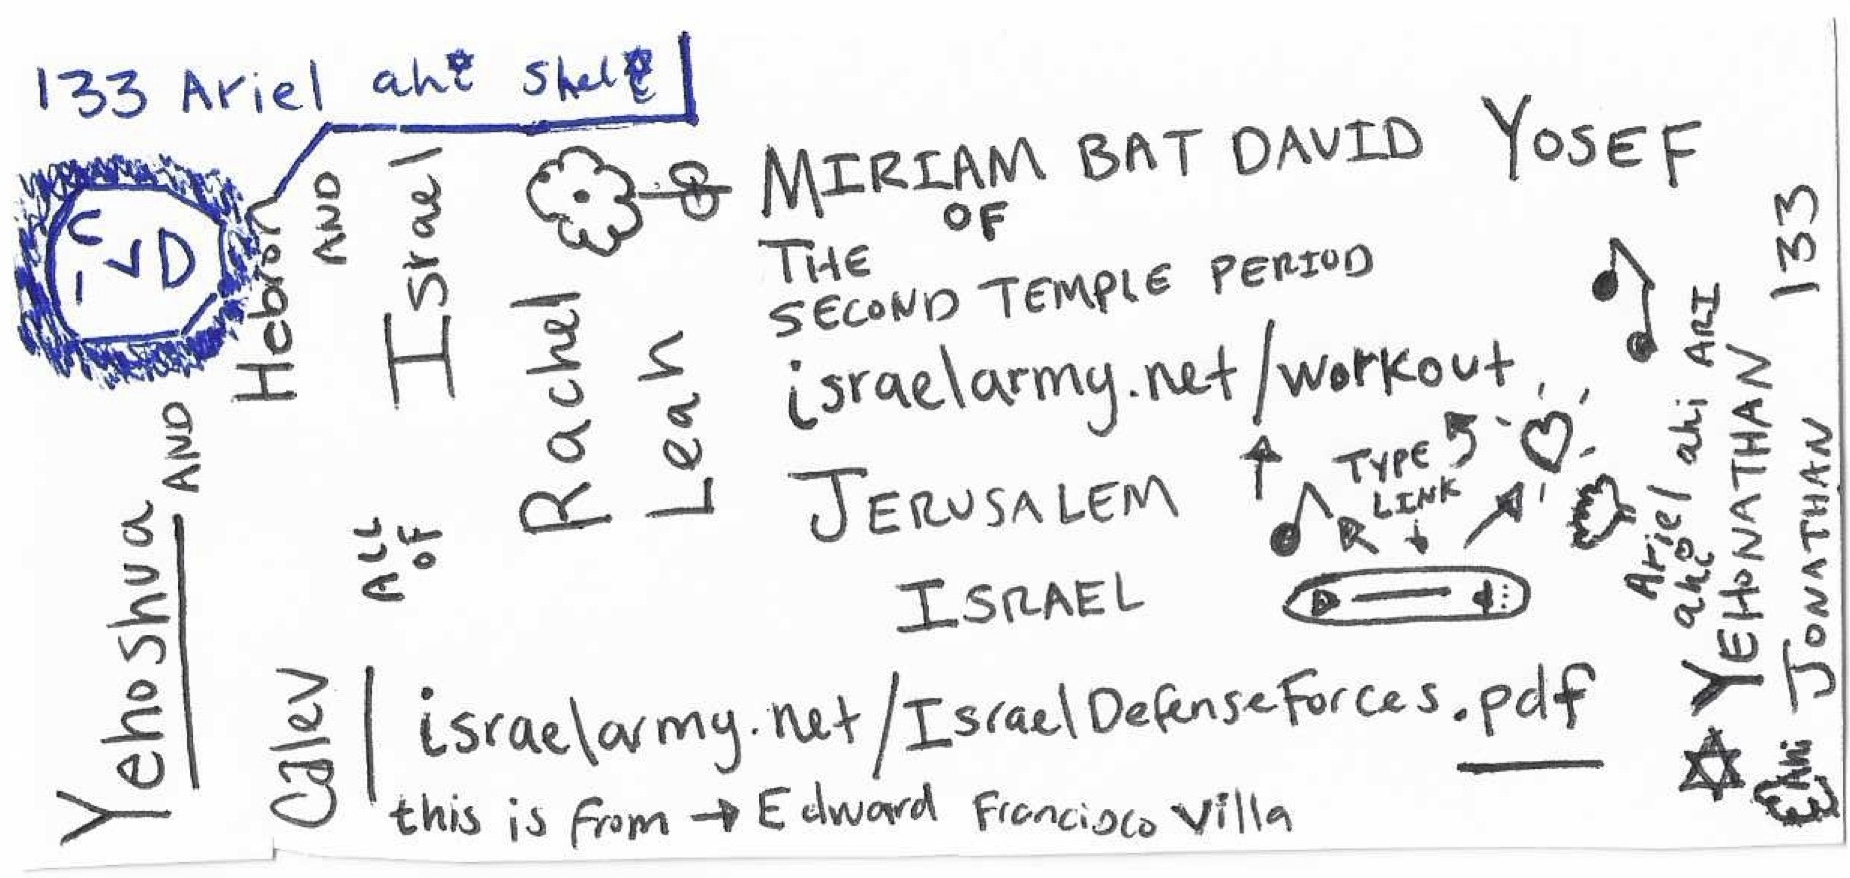 133 Ariel ahi Sheli
Yehoshua
AND
Calev
Hebron
AND
ALL
OF
Israel
Rachel
Leah
MIRIAM BAT DAVID YOSEF
OF
THE
SECOND TEMPLE PERIOD
israelarmy.net/workout
JERUSALEM
ISRAEL
TYPE
LINK
israelarmy.net/IsraelDefenseForces.pdf
this is from → Edward Francisco Villa
Ariel ahi ARI
ahi
YEHONATHAN
JONATHAN 133
Ahi